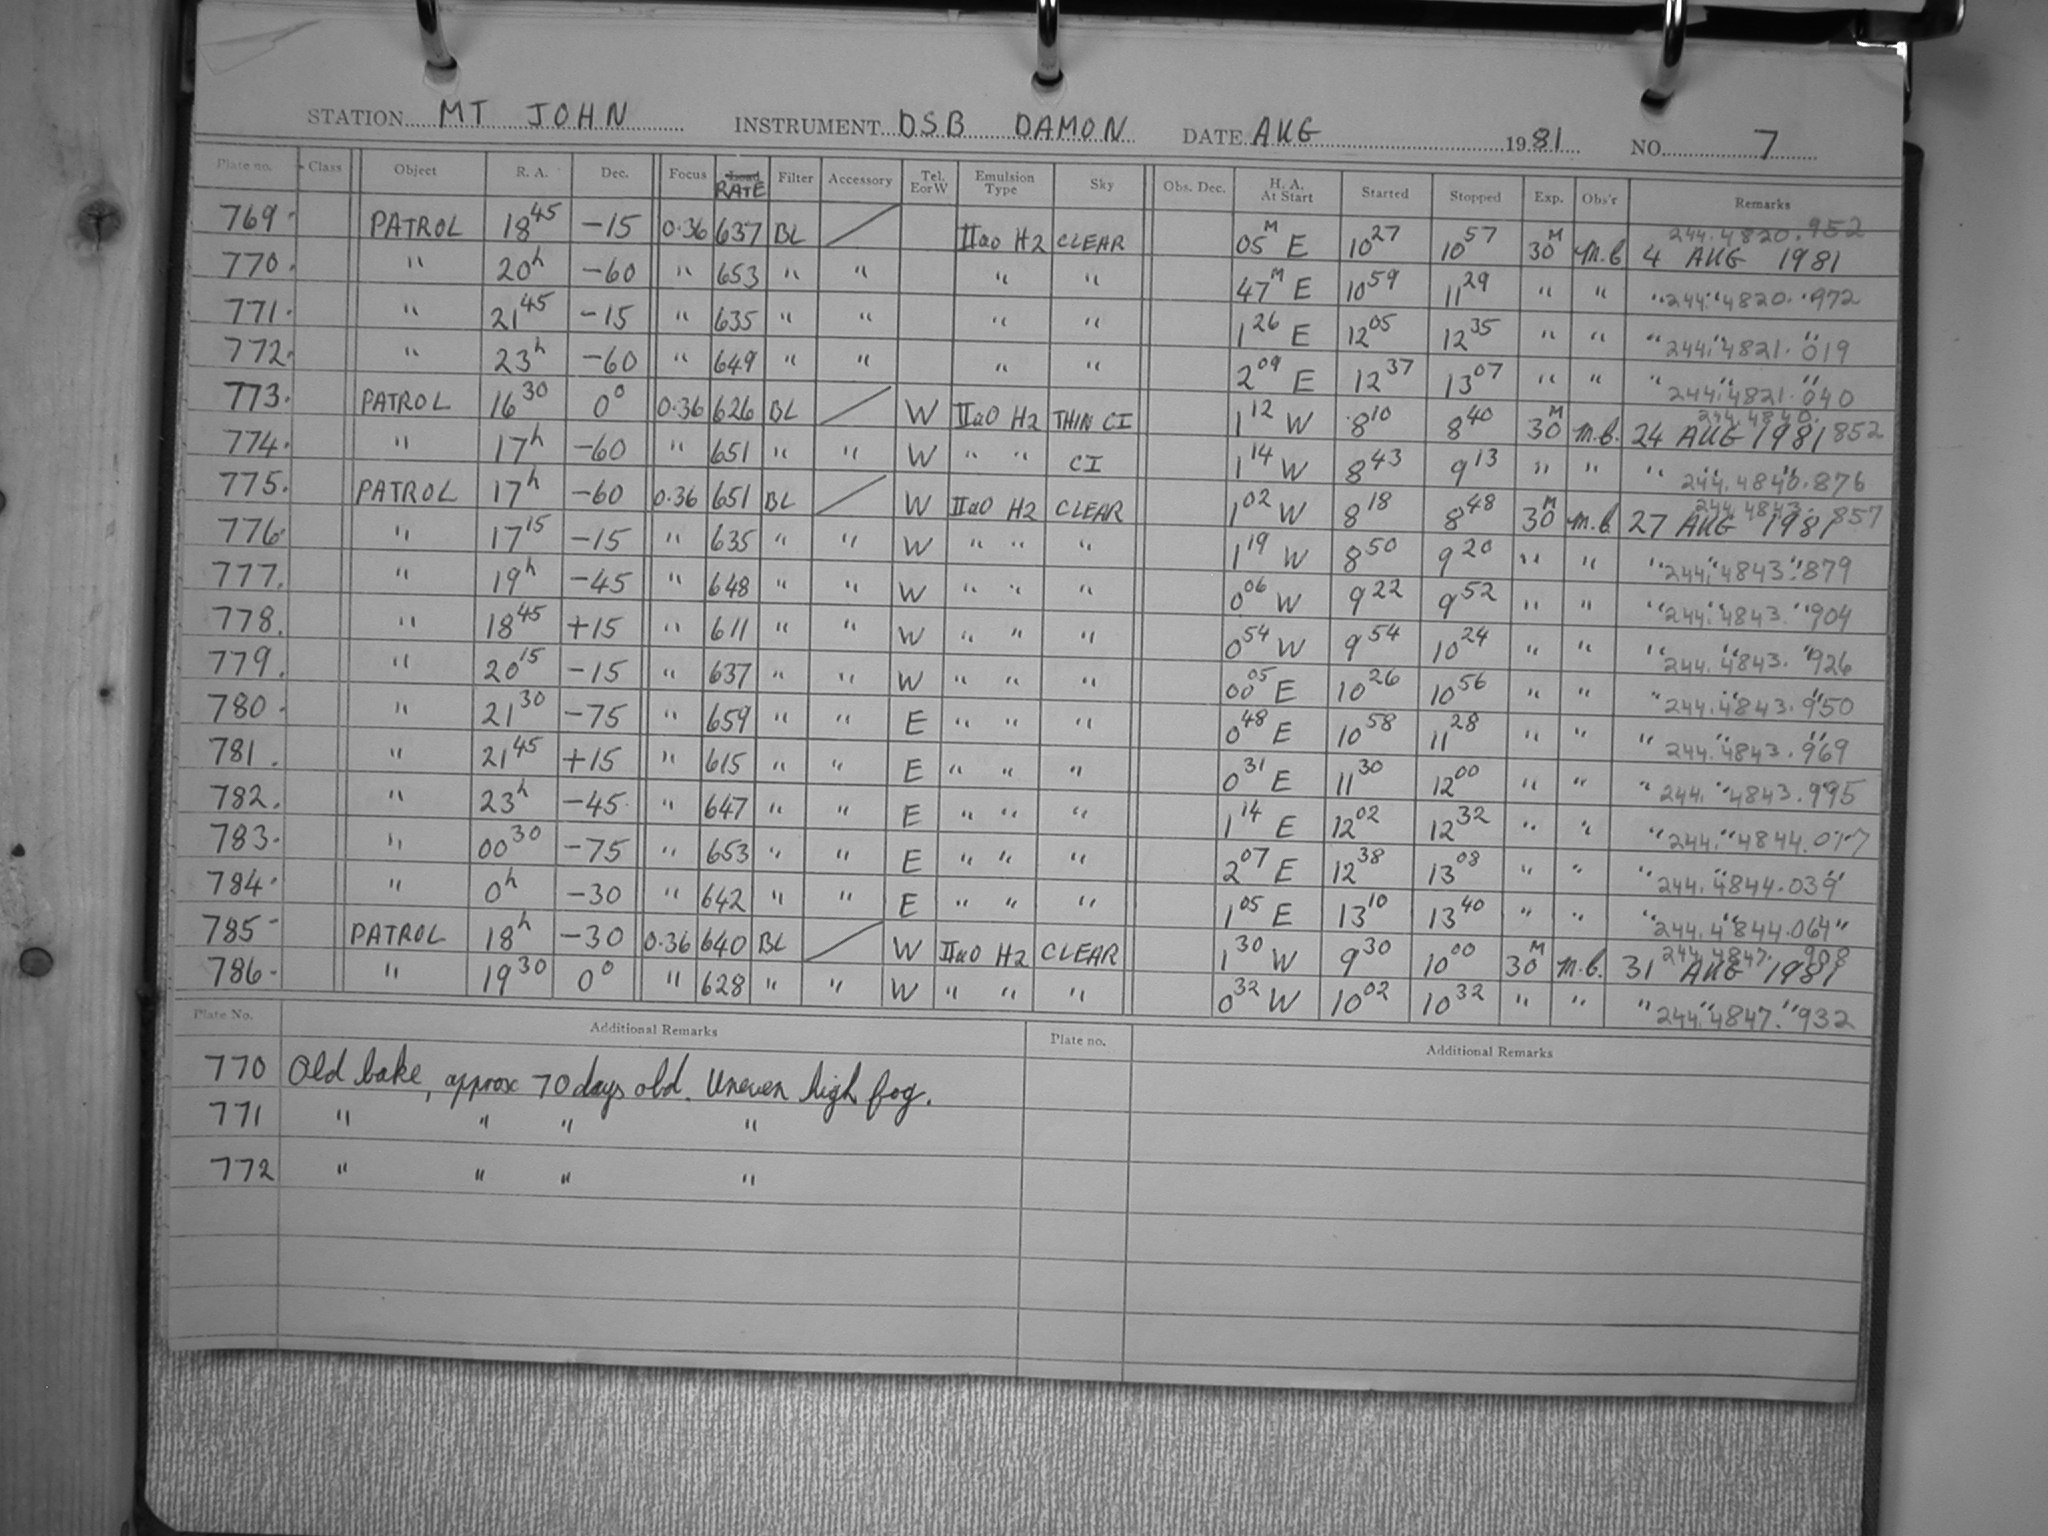 STATION MT JOHN INSTRUMENT DSB DAMON DATE AUG 1981 NO. 7
Plate no. Class Object R. A. Dec. Focus RATE Filter Accessory Tel. E or W Emulsion Type Sky Obs. Dec. H. A. At Start Started Stopped Exp. Obs'r Remarks
769. PATROL 18 45 -15 0.36 637 BL IIaO H2 CLEAR 05M E 10 27 10 57 30M M.B 4 AUG 1981 244.4820.952
770. " 20h -60 " 653 " " " " 47M E 10 59 11 29 " " " 244.4820.972
771. " 21 45 -15 " 635 " " " " 1 26 E 12 05 12 35 " " " 244.4821.019
772. " 23h -60 " 649 " " " " 2 09 E 12 37 13 07 " " " 244.4821.040
773. PATROL 16 30 0° 0.36 626 BL W IIaO H2 THIN CI 1 12 W 8 10 8 40 30M M.B. 24 AUG 1981 244.4840.852
774. " 17h -60 " 651 " " W " " CI 1 14 W 8 43 9 13 " " " 244.4840.876
775. PATROL 17h -60 0.36 651 BL W IIaO H2 CLEAR 1 02 W 8 18 8 48 30M M.B. 27 AUG 1981 244.4843.857
776. " 17 15 -15 " 635 " " W " " " 1 19 W 8 50 9 20 " " " 244.4843.879
777. " 19h -45 " 648 " " W " " " 0 06 W 9 22 9 52 " " " 244.4843.904
778. " 18 45 +15 " 611 " " W " " " 0 54 W 9 54 10 24 " " " 244.4843.926
779. " 20 15 -15 " 637 " " W " " " 00 05 E 10 26 10 56 " " " 244.4843.950
780. " 21 30 -75 " 659 " " E " " " 0 48 E 10 58 11 28 " " " 244.4843.969
781. " 21 45 +15 " 615 " " E " " " 0 31 E 11 30 12 00 " " " 244.4843.995
782. " 23h -45 " 647 " " E " " " 1 14 E 12 02 12 32 " " " 244.4844.017
783. " 00 30 -75 " 653 " " E " " " 2 07 E 12 38 13 08 " " " 244.4844.039
784. " 0h -30 " 642 " " E " " " 1 05 E 13 10 13 40 " " " 244.4844.064
785- PATROL 18h -30 0.36 640 BL W IIaO H2 CLEAR 1 30 W 9 30 10 00 30M M.B. 31 AUG 1981 244.4847.908
786- " 19 30 0° " 628 " " W " " " 0 32 W 10 02 10 32 " " " 244.4847.932
Plate No. Additional Remarks Plate no. Additional Remarks
770 Old bake, approx 70 days old. Uneven high fog.
771 " " " "
772 " " " "